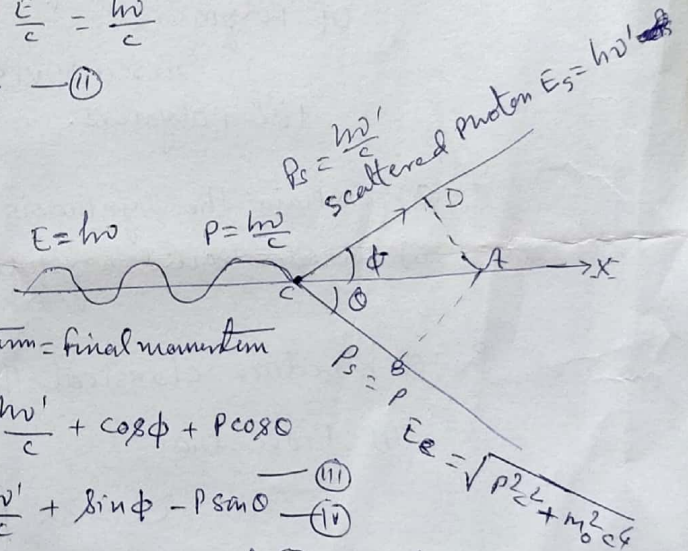 E/c = hν/c
— II
Ps = hν'/c
scattered photon Es = hν'
E = hν
P = hν/c
D
ϕ
A
X
C
θ
= final momentum
Ps = P
B
hν'/c + cosϕ + Pcosθ
— III
Ee = √P²c² + m₀²c⁴
+ sinϕ - Psinθ — IV